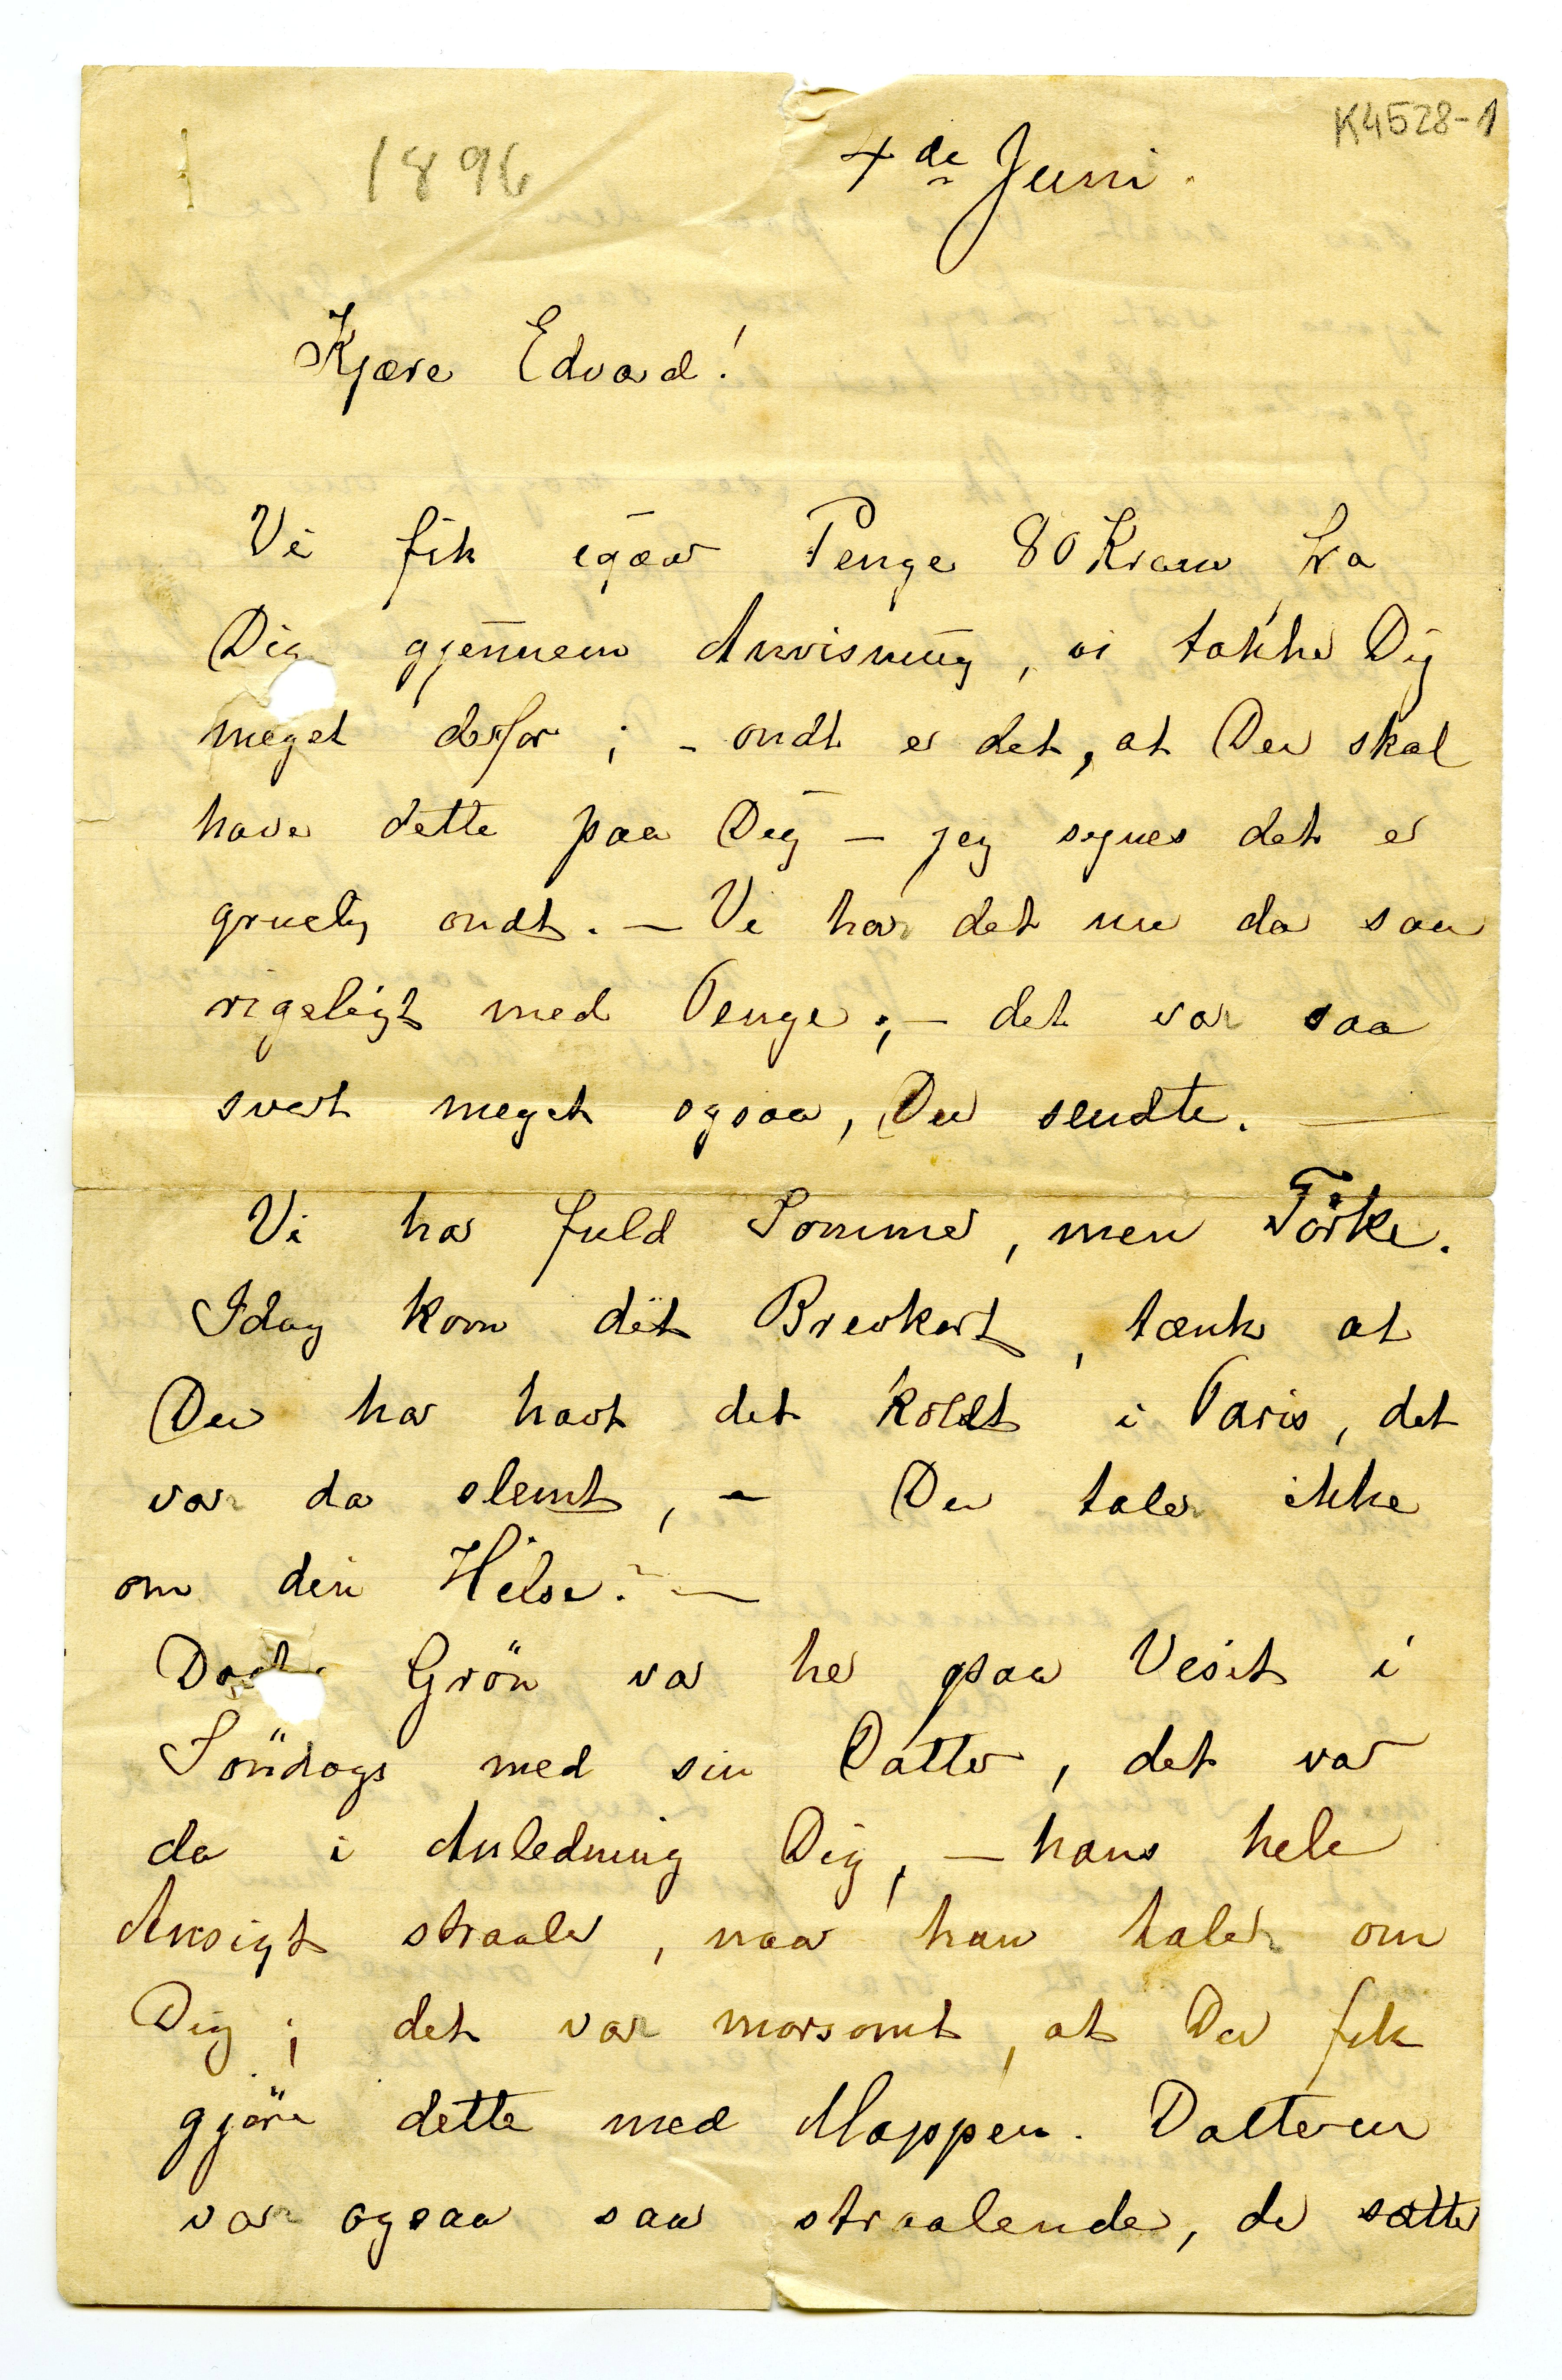 K4528-1
1896 4de Juni.
Kjære Edvard!
Vi fik igaar Penge 80 Kroner fra
Dig gjennem Anvisning, vi takke Dig
meget derfor; - ondt er det, at Du skal
have dette paa Dig – jeg synes det er
gruelig ondt. – Vi har det nu da saa
rigeligt med Penge; – det var saa
svert meget ogsaa, Du sendte. –
Vi har fuld Sommer, men Törke.
Idag kom dit Brevkort, tænk at
Du har havt det koldt i Paris, det
var da slemt, – Du taler ikke
om din Helse? –
Grön var her paa Visit i
Söndags med sin Datter, det var
da i Anledning Dig, – hans hele
Ansigt straaler, naar han taler om
Dig; det var morsomt, at Du fik
gjöre dette med Mappen. Datteren
var ogsaa saa straalende, de sætter